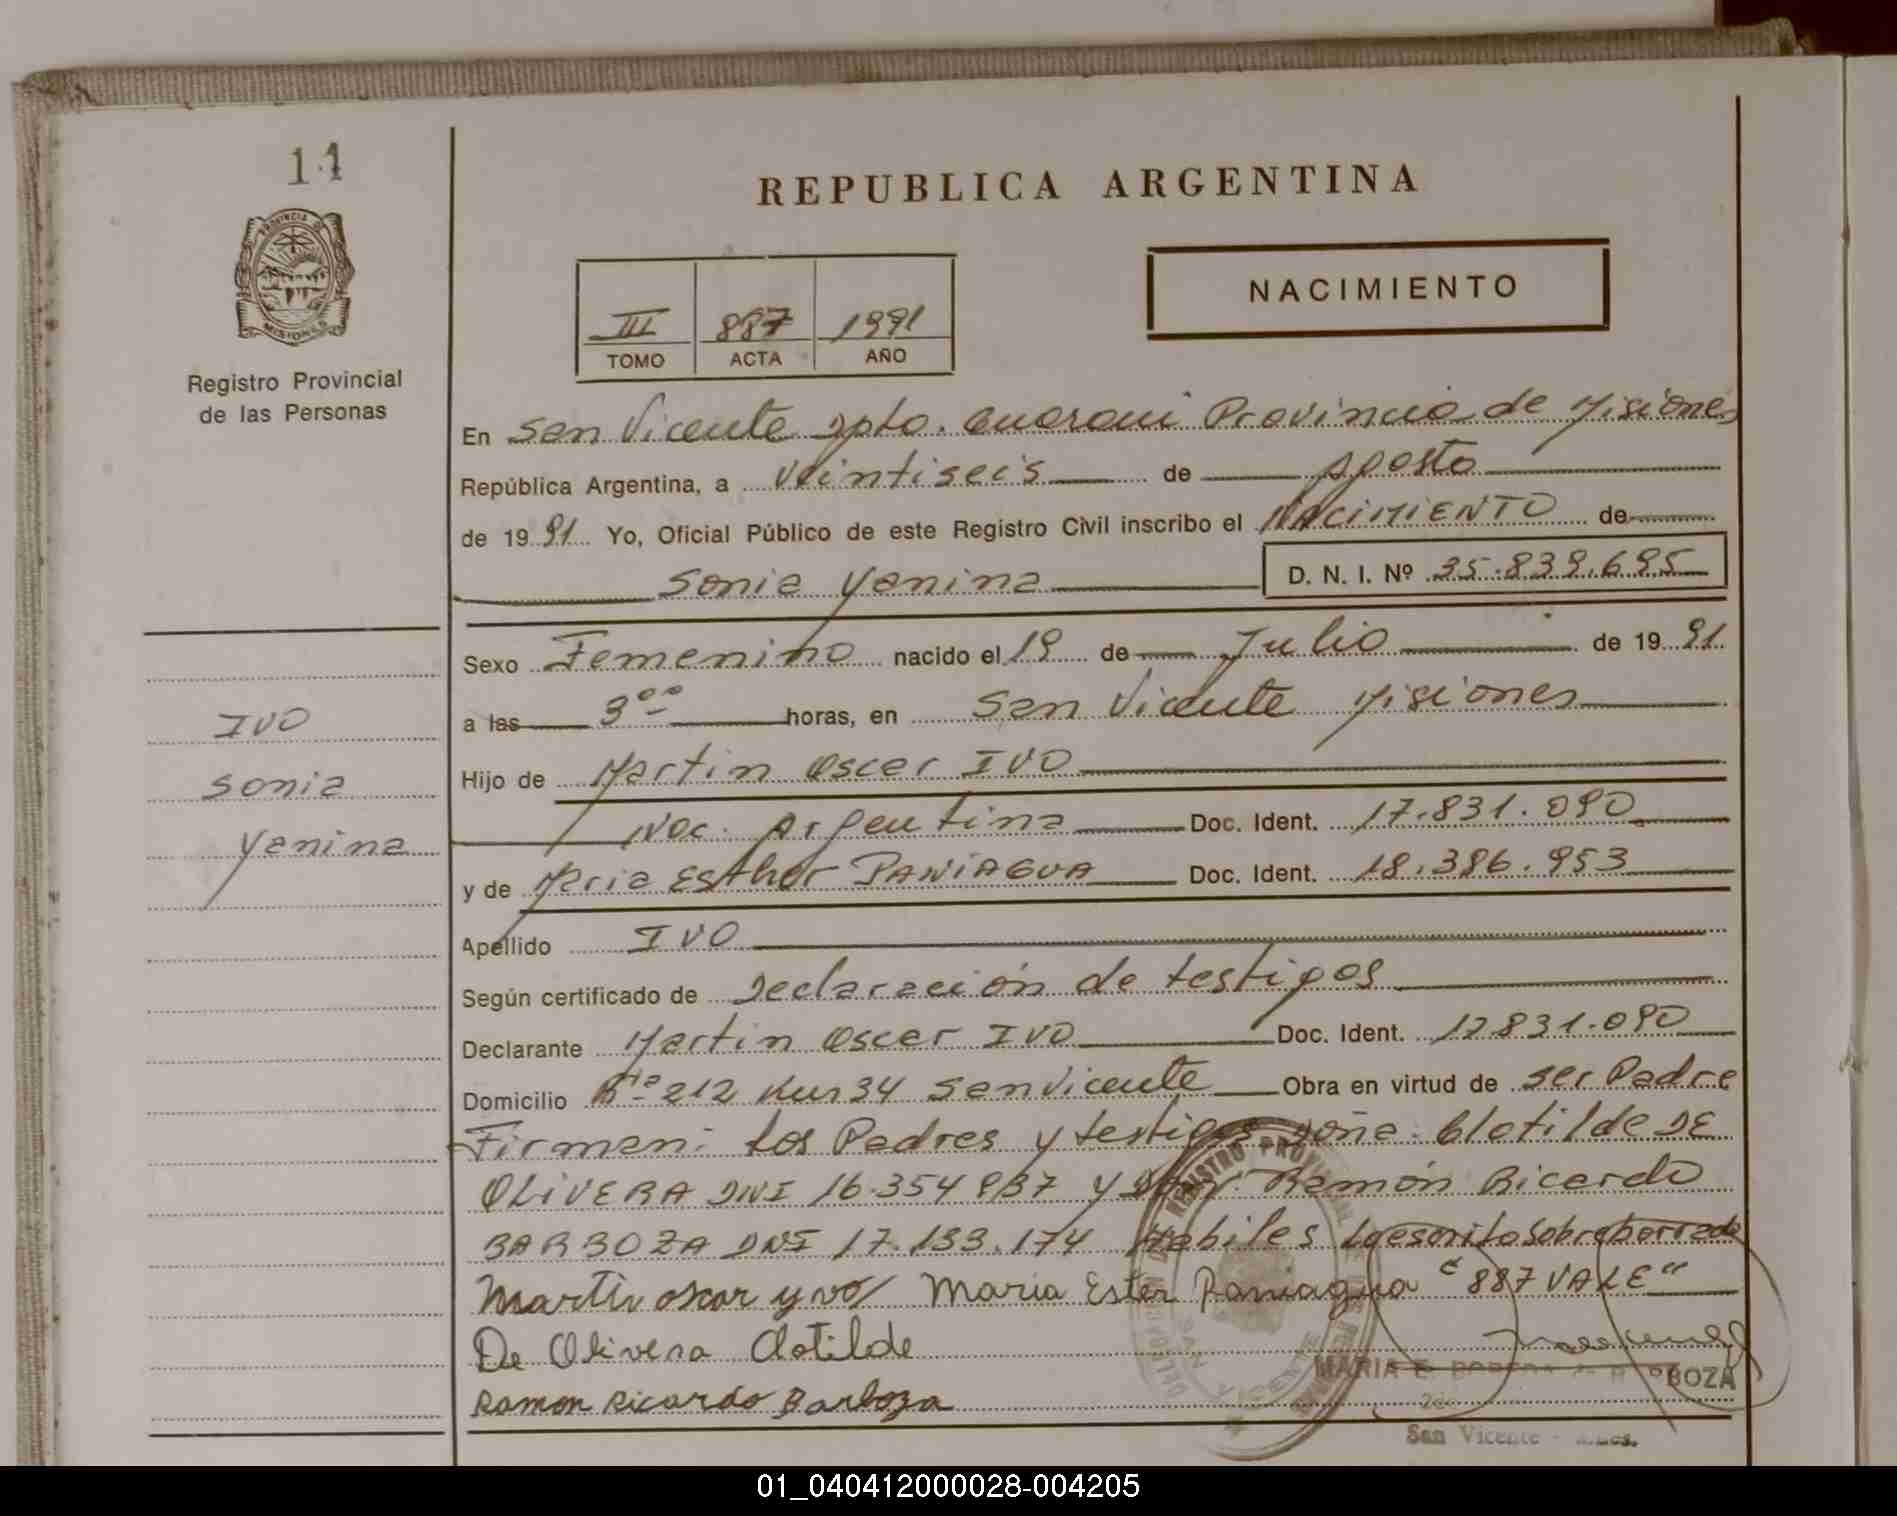 14
REPUBLICA ARGENTINA
PROVINCIA
MISIONES
NACIMIENTO
III 887 1991
TOMO ACTA AÑO
Registro Provincial
de las Personas
En San Vicente Dpto. Guarani Provincia de Misiones
República Argentina, a veintiseis de Agosto
de 1991 Yo, Oficial Público de este Registro Civil inscribo el NACIMIENTO de
Sonia Yanina D. N. I. Nº 35.839.695
Sexo Femenino nacido el 19 de Julio de 1991
a las 3°° horas, en San Vicente Misiones
IVO
Sonia
Yanina
Hijo de Martin Oscar IVO
Nac. Argentina Doc. Ident. 17.831.090
y de Maria Esther PANIAGUA Doc. Ident. 18.386.953
Apellido IVO
Según certificado de Declaración de testigos
Declarante Martin Oscar IVO Doc. Ident. 17831.090
Domicilio 212 Km 34 San Vicente Obra en virtud de ser Padre
Firman: Los Padres y testigos Doña Clotilde DE
OLIVERA DNI 16.354 937 y Ramón Ricardo
BARBOZA DNI 17.133.174 Habiles Lo escrito sobre borrado
Martin oskar yvo Maria Ester Paniagua "887 VALE"
De Olivera Clotilde
Ramon Ricardo Barboza
REGISTRO PROVINCIAL
SAN VICENTE
MARIA E. BOZA
San Vicente
01_040412000028-004205